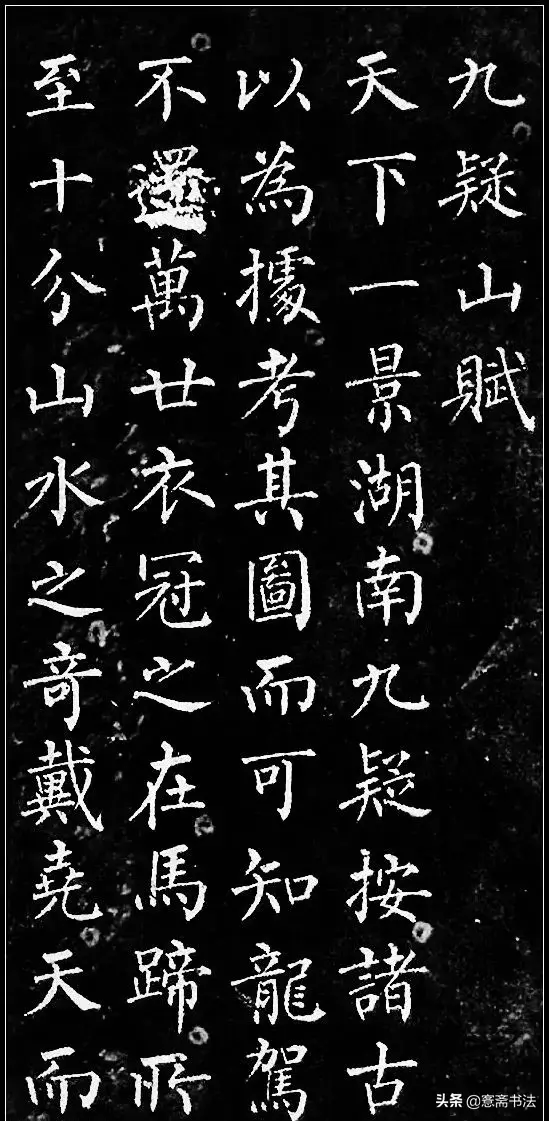 九疑山賦
天下一景湖南九疑按諸古
以為據考其圖而可知龍駕
不還萬廿衣冠之在馬蹄所
至十分山水之奇戴堯天而
头条 @意斋书法